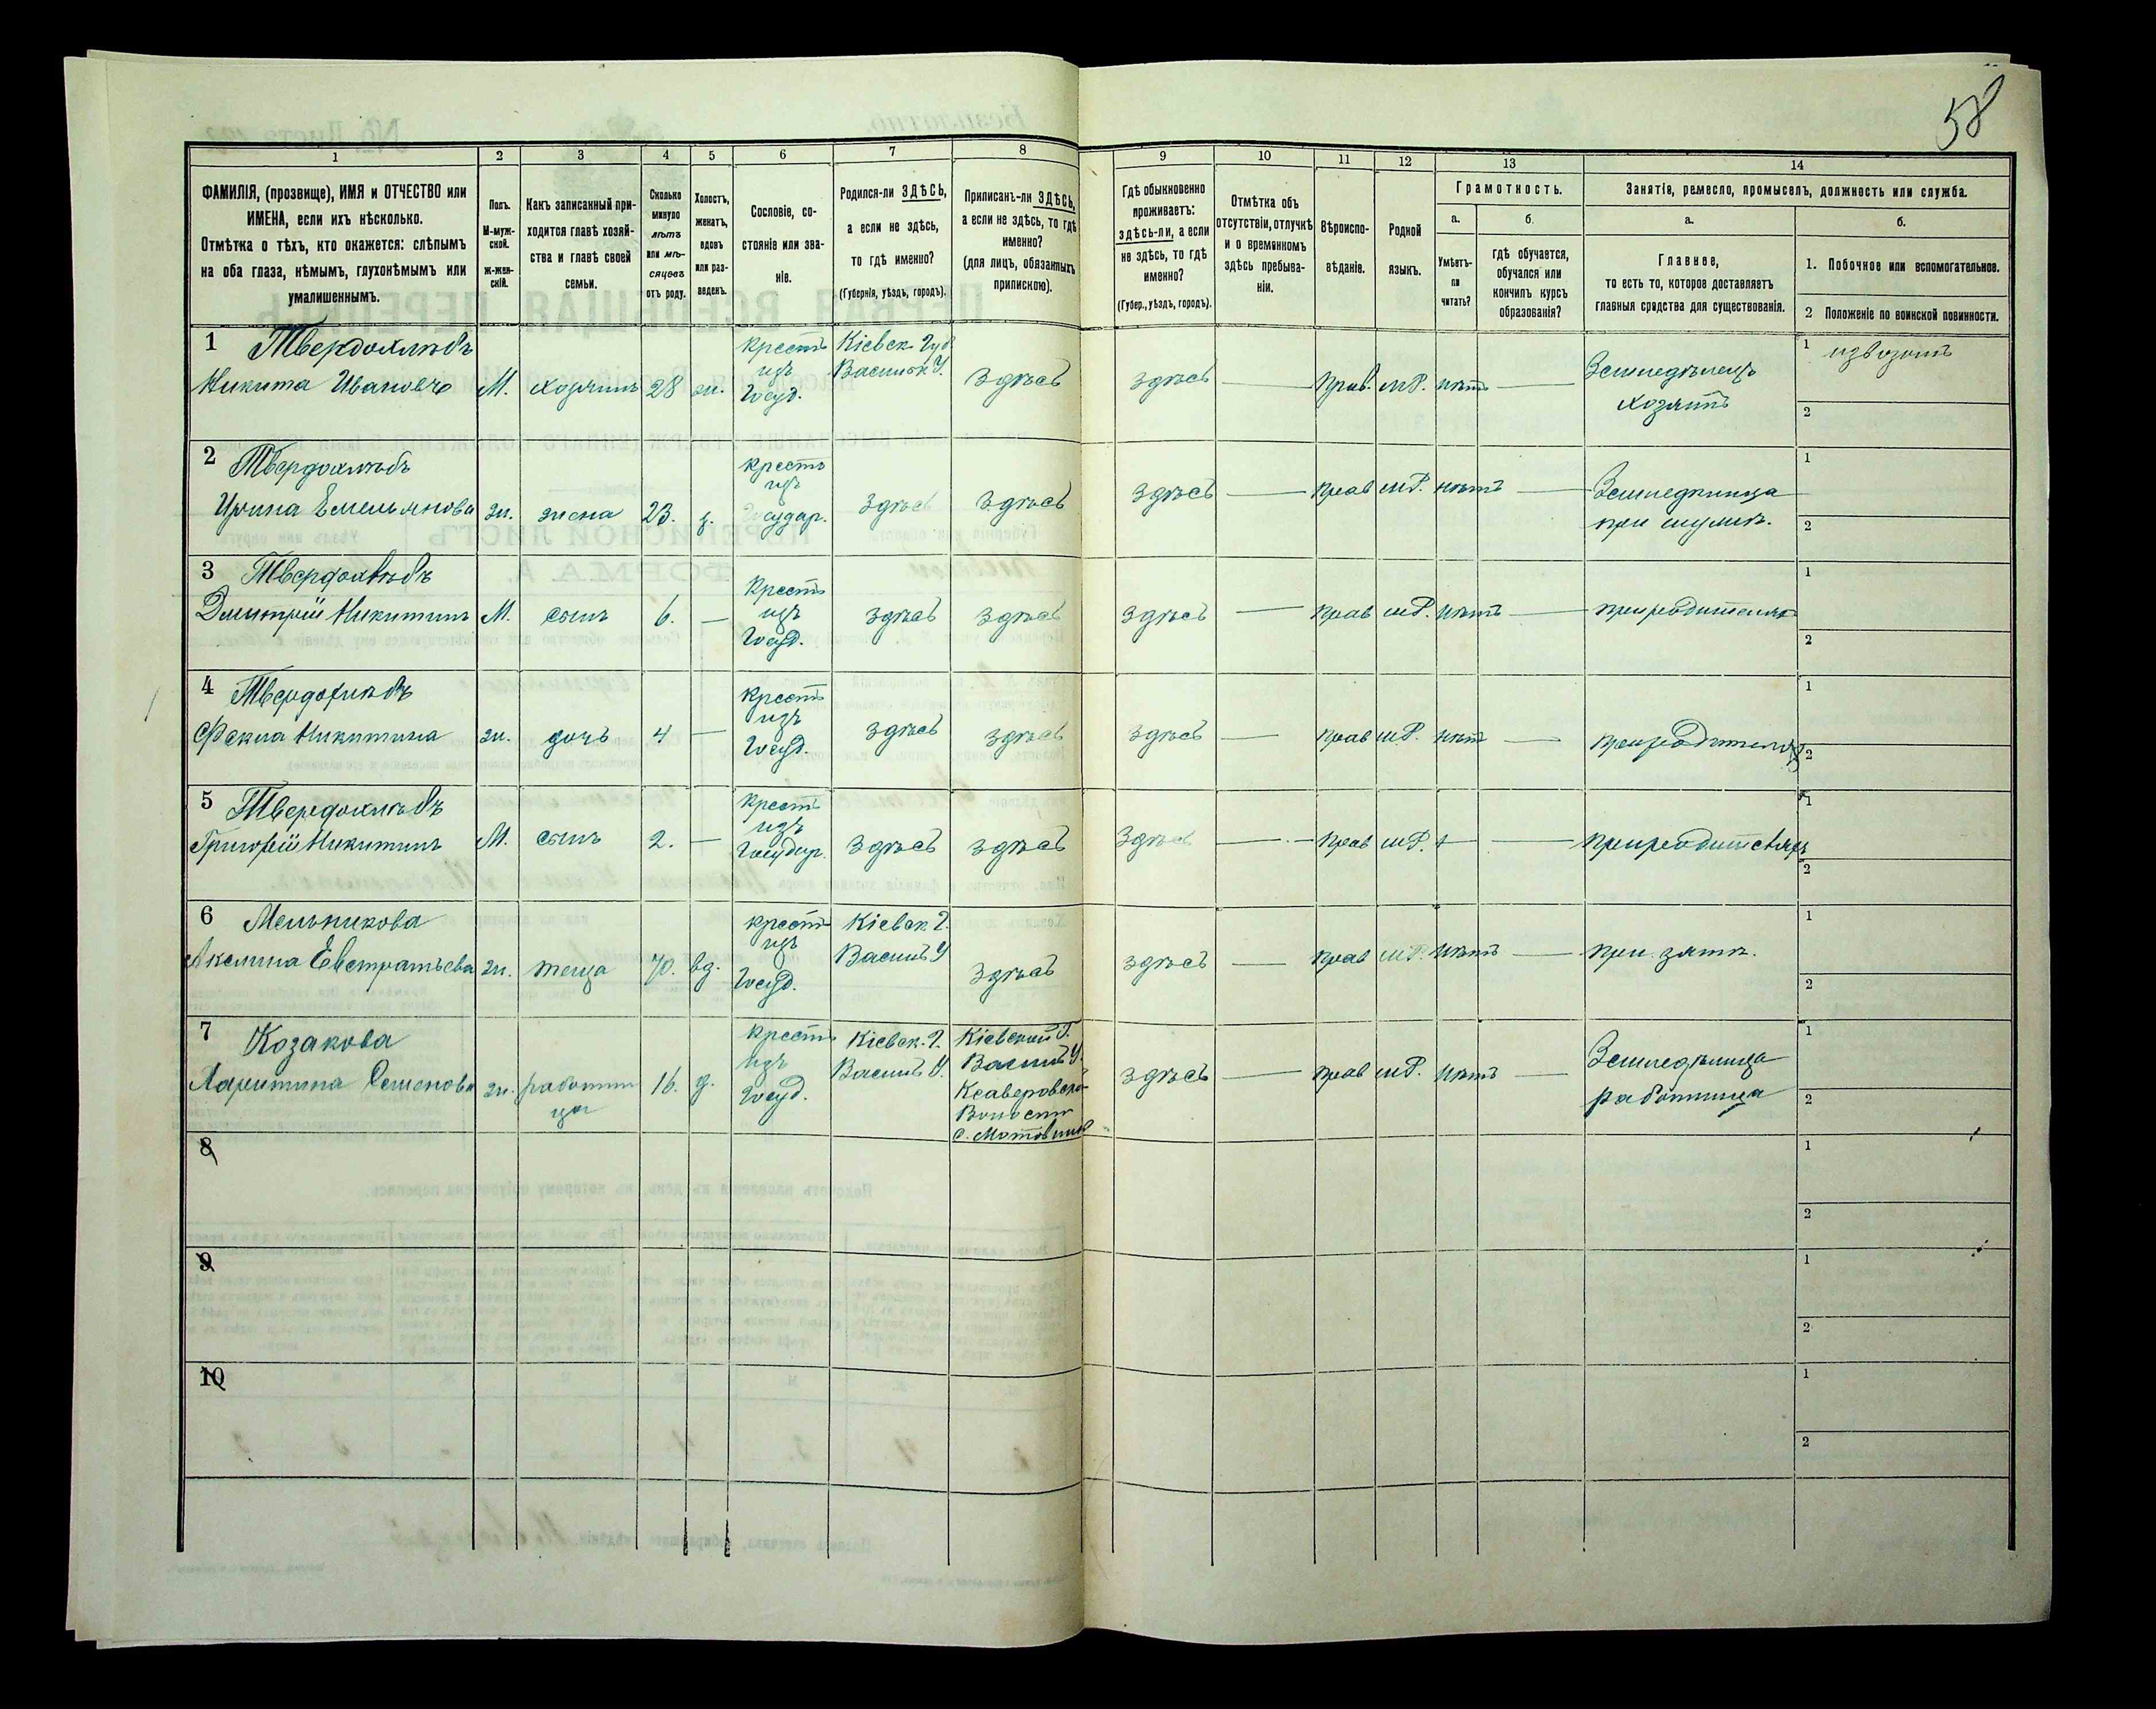 58
1 2 3 4 5 6 7 8 9 10 11 12 13 14
ФАМИЛІЯ, (прозвище), ИМЯ и ОТЧЕСТВО или
ИМЕНА, если ихъ нѣсколько.
Отмѣтка о тѣхъ, кто окажется: слѣпымъ
на оба глаза, нѣмымъ, глухонѣмымъ или
умалишеннымъ.
Полъ.
М-муж-
ской.
Ж-жен-
скій.
Какъ записанный при-
ходится главѣ хозяй-
ства и главѣ своей
семьи.
Сколько
минуло
лѣтъ
или мѣ-
сяцевъ
отъ роду.
Холостъ,
женатъ,
вдовъ
или раз-
веденъ.
Сословіе, со-
стояніе или зва-
ніе.
Родился-ли ЗДѢСЬ,
а если не здѣсь,
то гдѣ именно?
(Губернія, уѣздъ, городъ).
Приписанъ-ли ЗДѢСЬ,
а если не здѣсь, то гдѣ
именно?
(для лицъ, обязанныхъ
припискою).
Гдѣ обыкновенно
проживаетъ:
здѣсь-ли, а если
не здѣсь, то гдѣ
именно?
(Губер., уѣздъ, городъ).
Отмѣтка объ
отсутствіи, отлучкѣ
и о временномъ
здѣсь пребыва-
ніи.
Вѣроиспо-
вѣданіе.
Родной
языкъ.
Грамотность.
а.
Умѣетъ-
ли
читать?
б.
гдѣ обучается,
обучался или
кончилъ курсъ
образованія?
Занятіе, ремесло, промыселъ, должность или служба.
а.
Главное,
то есть то, которое доставляетъ
главныя средства для существованія.
б.
1. Побочное или вспомогательное.
2 Положеніе по воинской повинности.
1 Твердохлѣбъ крестъ Кіевск. Губ 1 извозомъ
Никита Ивановъ М. хозяинъ 28 ж. изъ Госуд. Васильк У. Здѣсь здѣсь — Прав. мР. нѣтъ — Земледѣлецъ
хозяинъ 2
2 Твердохлѣбъ крестъ 1
Ирина Емельянова ж. жена 23. з. изъ Государ. Здѣсь Здѣсь Здѣсь — прав мР. нѣтъ — Земледѣлица
при мужѣ. 2
3 Твердохлѣбъ Крестъ 1
Дмитрій Никитинъ М. сынъ 6. — изъ Госуд. здѣсь здѣсь здѣсь — прав мР. нѣтъ — при родителяхъ 2
4 Твердохлѣбъ Крестъ 1
Фекла Никитина ж. дочь 4 — изъ Госуд. здѣсь здѣсь здѣсь — прав мР. нѣтъ — при родителяхъ 2
5 Твердохлѣбъ крестъ 1
Григорій Никитинъ М. сынъ 2. — изъ Государ. здѣсь здѣсь здѣсь — прав мР. + — при родителяхъ 2
6 Мельникова крестъ Кіевск Г. 1
Акилина Евстратьева ж. теща 70. вд. изъ Госуд. Васильк У здѣсь здѣсь — прав мР. нѣтъ — при зятѣ. 2
7 Козакова крестъ Кіевск. Г. Кіевской Г. 1
Харитина Семенова ж. работни
ца 16. д. изъ Госуд. Васильк У. Васильк У.
Ксаверовской
Волости
с. Мотовиловка
здѣсь — прав мР. нѣтъ — Земледѣлица
работница 2
8 1
2
9 1
2
10 1
2